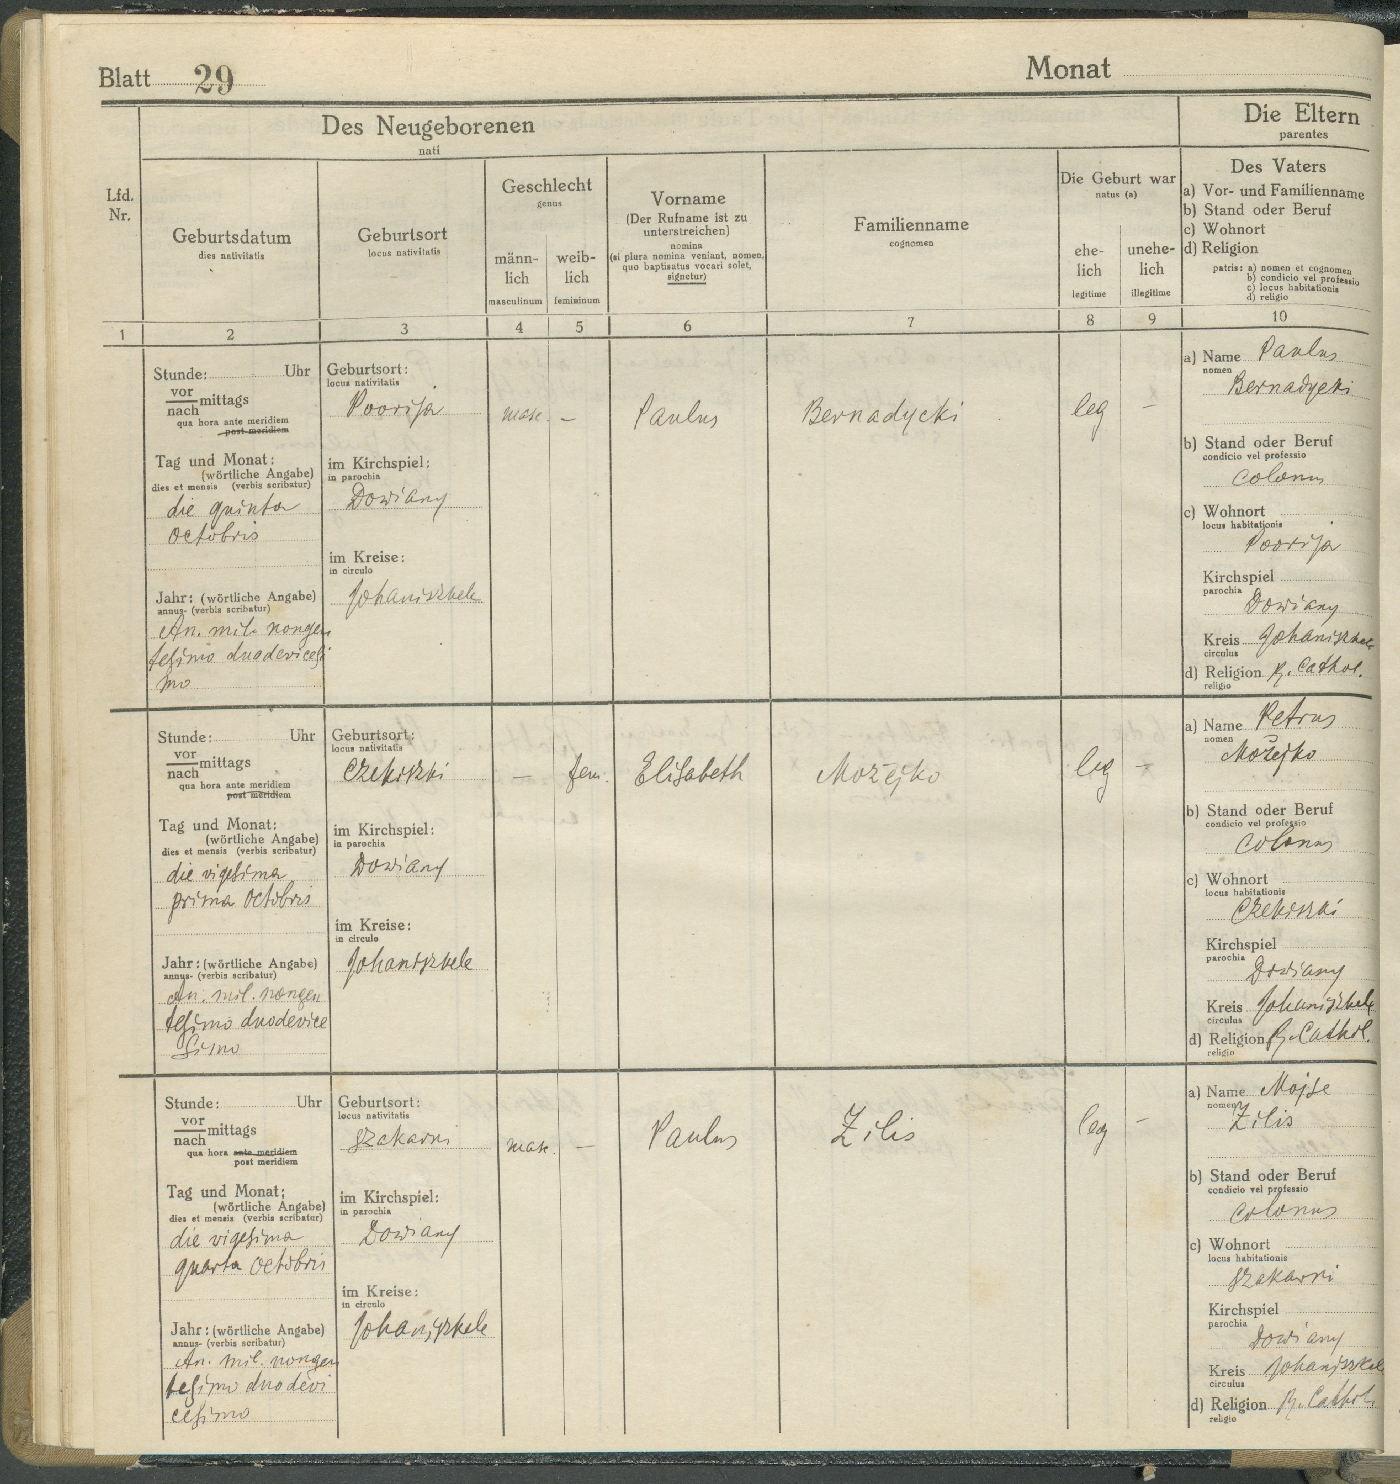 Blatt 29
Monat
Des Neugeborenen
nati
Die Eltern
parentes
Lfd.
Nr.
Geburtsdatum
dies nativitatis
Geburtsort
locus nativitatis
Geschlecht
genus
männ-
lich
masculinum
weib-
lich
femininum
Vorname
(Der Rufname ist zu
unterstreichen)
nomina
(si plura nomina veniant, nomen,
quo baptisatus vocari solet,
signetur)
Familienname
cognomen
Die Geburt war
natus (a)
ehe-
lich
legitime
unehe-
lich
illegitime
Des Vaters
a) Vor- und Familienname
b) Stand oder Beruf
c) Wohnort
d) Religion
patris: a) nomen et cognomen
b) condicio vel professio
c) locus habitationis
d) religio
1 2 3 4 5 6 7 8 9 10
Stunde: Uhr
vor
nach mittags
qua hora ante meridiem
post meridiem
Tag und Monat:
(wörtliche Angabe)
dies et mensis (verbis scribatur)
die quinta
octobris
Jahr: (wörtliche Angabe)
annus- (verbis scribatur)
An. mil. nongen
tesimo duodevicesi
mo
Geburtsort:
locus nativitatis
Poorija
im Kirchspiel:
in parochia
Dowiany
im Kreise:
in circulo
Johaniszkele
masc. –
Paulus
Bernadycki
leg –
a) Name Paulus
nomen
Bernadycki
b) Stand oder Beruf
condicio vel professio
colonus
c) Wohnort
locus habitationis
Poorija
Kirchspiel
parochia
Dowiany
Kreis Johaniszkele
circulus
d) Religion R. Cathol.
religio
Stunde: Uhr
vor
nach mittags
qua hora ante meridiem
post meridiem
Tag und Monat:
(wörtliche Angabe)
dies et mensis (verbis scribatur)
die vigesima
prima octobris
Jahr: (wörtliche Angabe)
annus- (verbis scribatur)
An. mil. nongen
tesimo duodevice
simo
Geburtsort:
locus nativitatis
Czekiszki
im Kirchspiel:
in parochia
Dowiany
im Kreise:
in circulo
Johaniszkele
– fem.
Elisabeth
Możejko
leg –
a) Name Petrus
nomen
Możejko
b) Stand oder Beruf
condicio vel professio
colonus
c) Wohnort
locus habitationis
Czekiszki
Kirchspiel
parochia
Dowiany
Kreis Johaniszkele
circulus
d) Religion R. Cathol.
religio
Stunde: Uhr
vor
nach mittags
qua hora ante meridiem
post meridiem
Tag und Monat:
(wörtliche Angabe)
dies et mensis (verbis scribatur)
die vigesima
quarta octobris
Jahr: (wörtliche Angabe)
annus- (verbis scribatur)
An. mil. nongen
tesimo duodevi
cesimo
Geburtsort:
locus nativitatis
Szakarni
im Kirchspiel:
in parochia
Dowiany
im Kreise:
in circulo
Johaniszkele
masc. –
Paulus
Zilis
leg –
a) Name Mojse
nomen
Zilis
b) Stand oder Beruf
condicio vel professio
colonus
c) Wohnort
locus habitationis
Szakarni
Kirchspiel
parochia
Dowiany
Kreis Johaniszkele
circulus
d) Religion R. Cathol.
religio